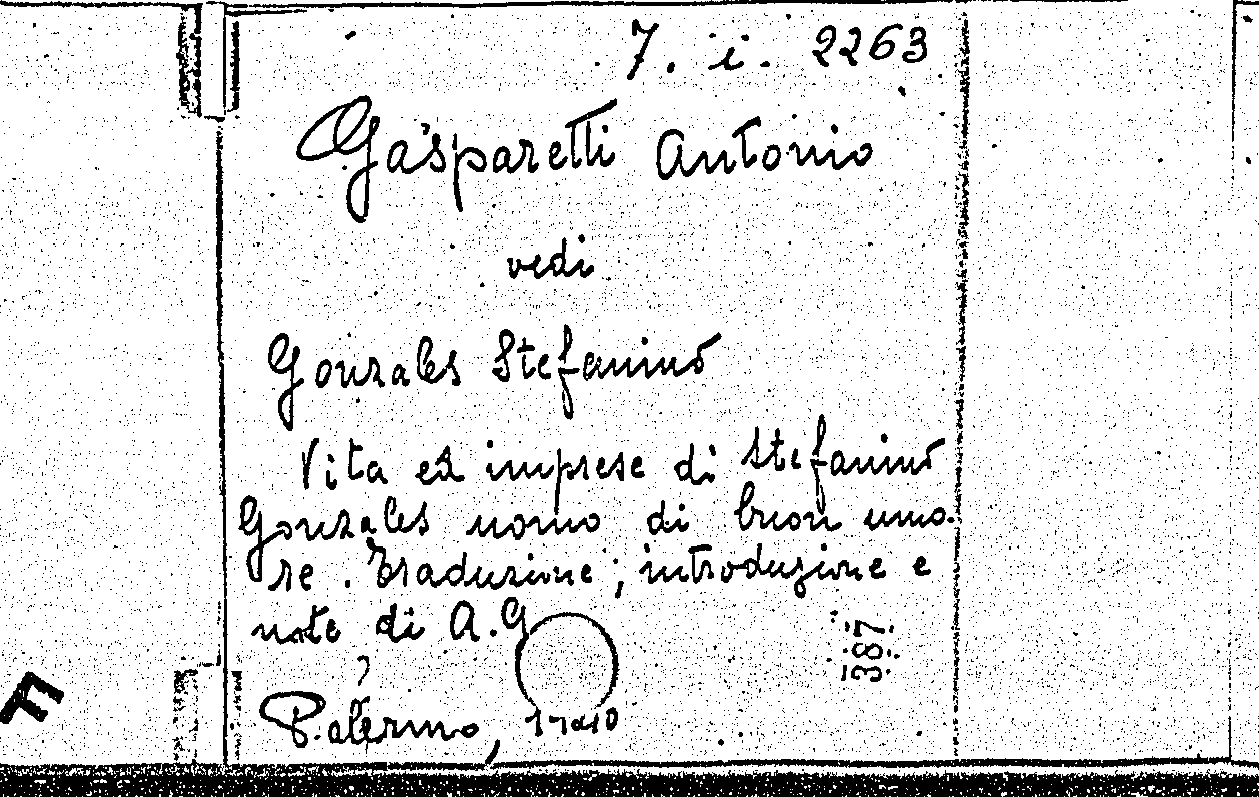 7. i. 2263
Gasparetti Antonio
vedi
Gonzales Stefanino
Vita ed imprese di Stefanino
Gonzales uomo di buon umo-
re. Traduzione; introduzione e
note di A.G
Palermo,
387